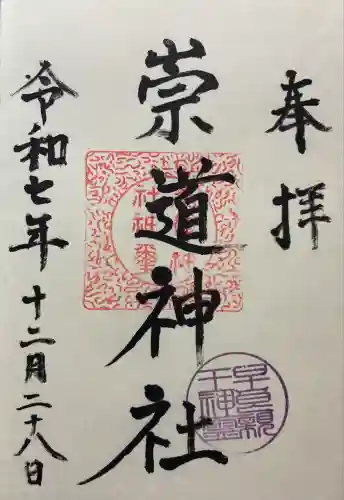 奉拝
崇道神社
令和七年十二月二十八日